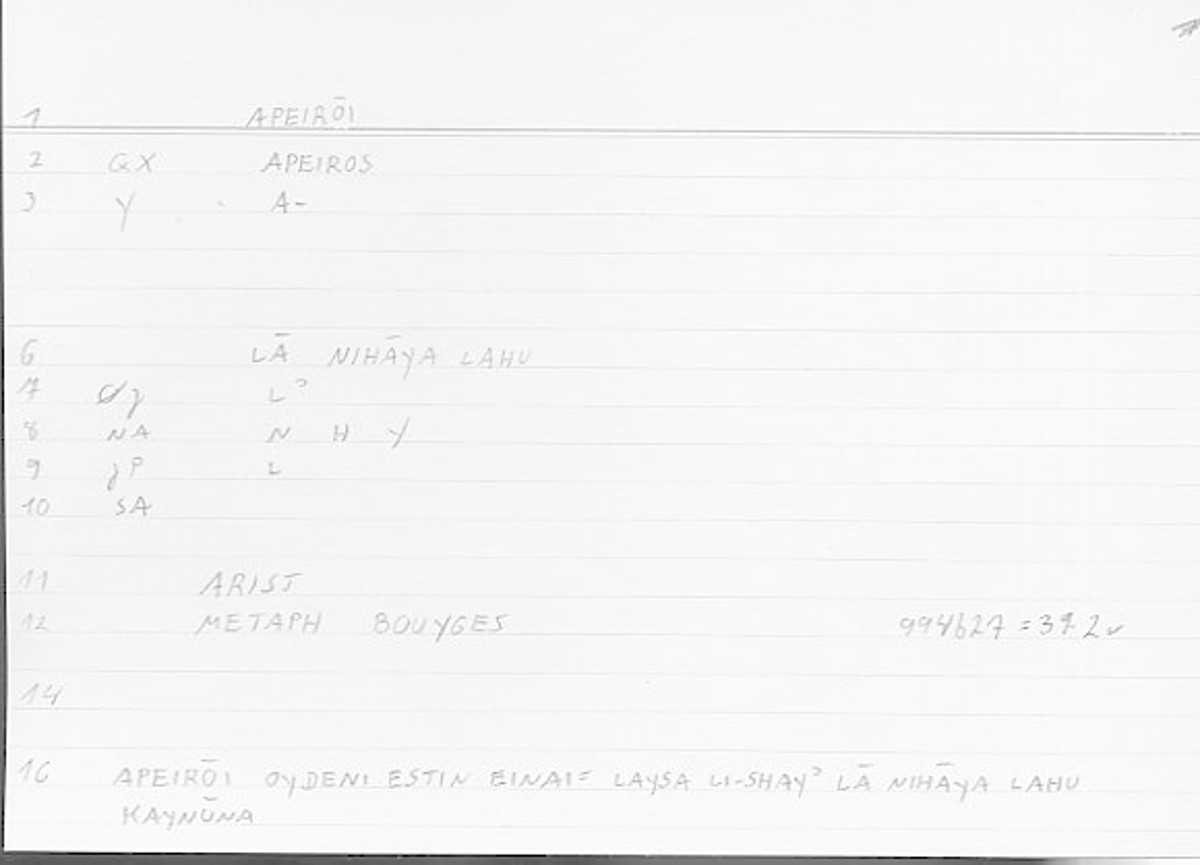 1 APEIRŌI
2 GX APEIROS
3 Y A-
6 LĀ NIHĀYA LAHU
7 Lʾ
8 NA N H Y
9 P L
10 SA
11 ARIST
12 METAPH BOUYGES
14
16 APEIRŌI OYDENI ESTIN EINAI= LAYSA LI-SHAYʾ LĀ NIHĀYA LAHU
KAYNŪNA